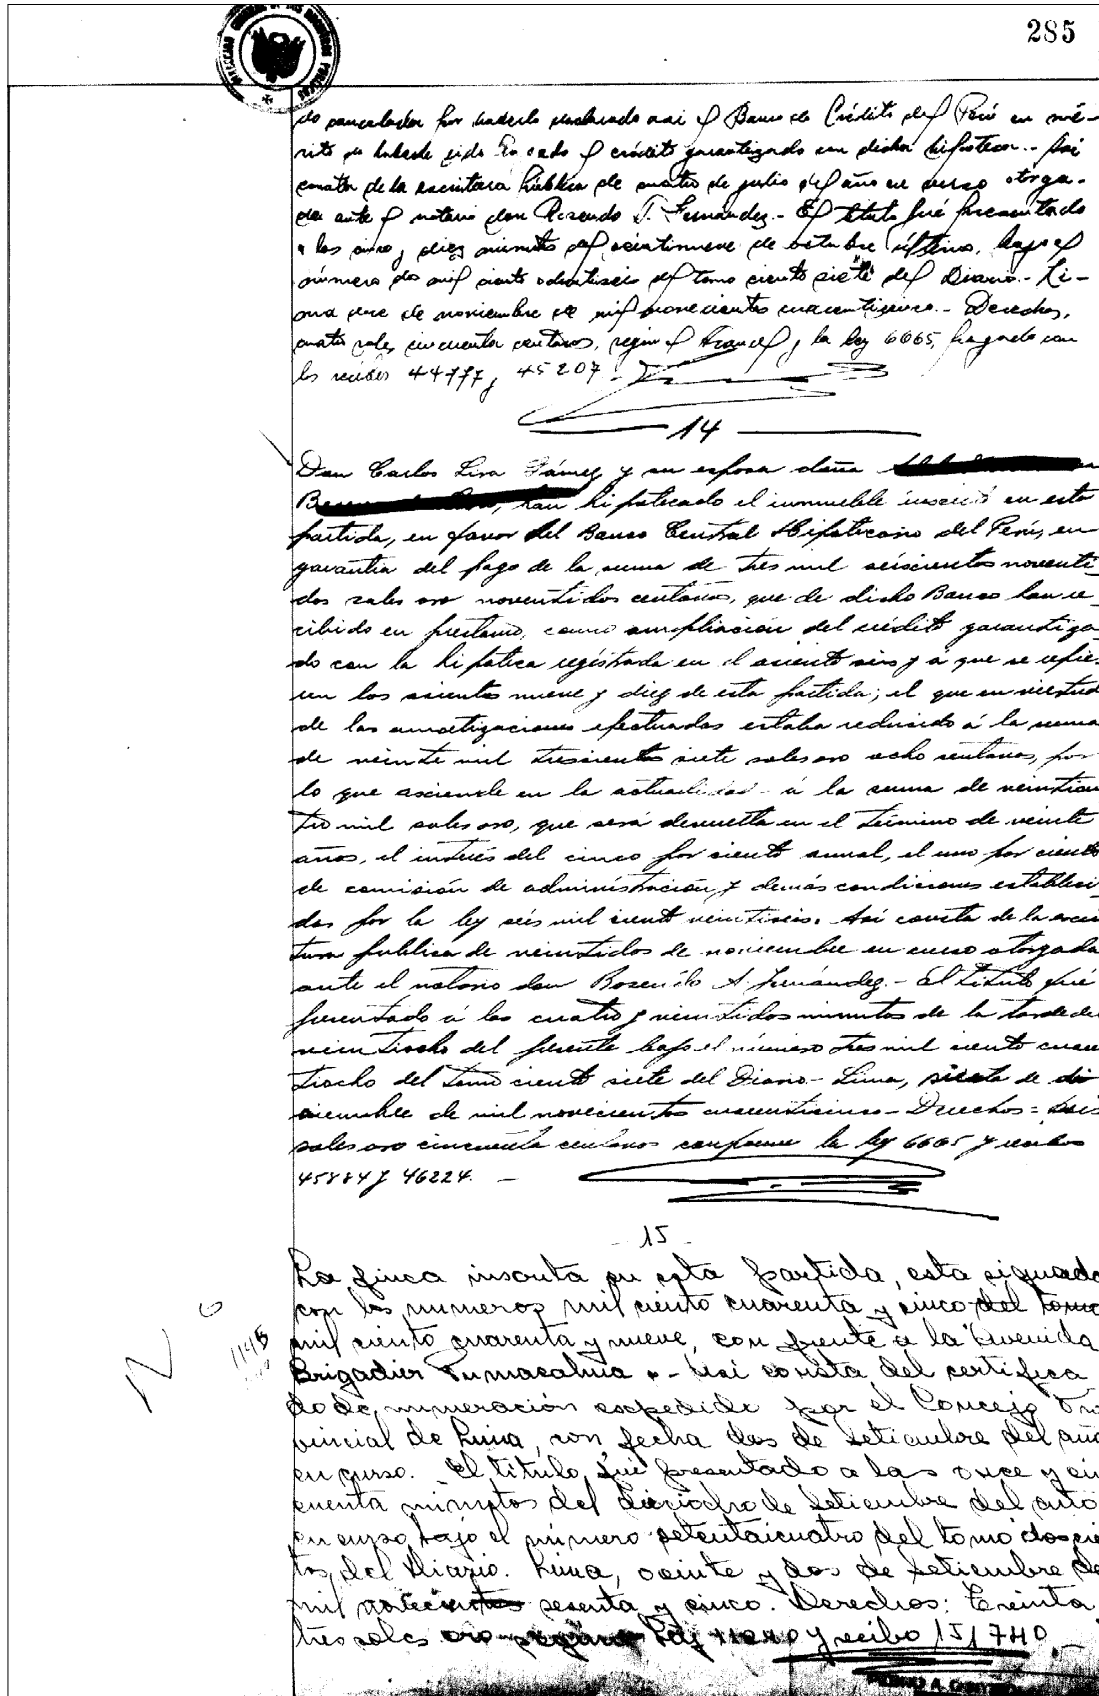 285
do cancelada por haberlo declarado así el Banco de Crédito del Perú en mé-
rito de haberle sido pagado el crédito garantizado con dicha hipoteca.- Así
consta de la escritura pública de cuatro de julio del año en curso otorga-
da ante el notario don Rosendo Fernández.- El título fué presentado
a las cinco y diez minutos del veintinueve de octubre último, bajo el
número dos mil ciento ochentiseis del tomo ciento siete del Diario.- Li-
ma, de noviembre de mil novecientos cuarenticinco.- Derechos,
cuatro soles cincuenta centavos, según el Arancel y la ley 6665, pagado con
los recibos 44777 y 45207.-
14
Don Carlos Lira Gámez y su esposa doña
han hipotecado el inmueble inscrito en esta
partida, en favor del Banco Central Hipotecario del Perú, en
garantía del pago de la suma de tres mil seiscientos noventi-
dos soles oro noventidos centavos, que de dicho Banco han re-
cibido en préstamo, como ampliación del crédito garantiza-
do con la hipoteca registrada en el asiento seis y á que se refie-
ren los asientos nueve y diez de esta partida; el que en virtud
de las amortizaciones efectuadas estaba reducido á la suma
de veinte mil trescientos siete soles oro ocho centavos, por
lo que asciende en la actualidad á la suma de veinticua
tro mil soles oro, que será devuelta en el término de veinte
años, el interés del cinco por ciento anual, el uno por ciento
de comisión de administración, y demás condiciones estableci
das por la ley seis mil ciento veintiseis. Así consta de la escri
tura pública de veintidos de noviembre en curso otorgada
ante el notario don Rosendo Fernández.- El título fué
presentado á las cuatro y veintidos minutos de la tarde del
veintiocho del presente bajo el número tres mil ciento cuaren
tiocho del tomo ciento siete del Diario- Lima, siete de di
ciembre de mil novecientos cuarenticinco- Derechos = seis
soles oro cincuenta centavos conforme la ley 6665 y recibos
45884 y 46224. -
- 15 -
La finca inscrita en esta partida, esta signada
con los numeros mil ciento cuarenta y cinco del tomo
mil ciento cuarenta y nueve, con frente a la Avenida
1145
Brigadier Pumacahua.- Así consta del certifica
do de numeración expedido por el Concejo Pro
vincial de Lima, con fecha dos de Setiembre del año
en curso. El título fué presentado a las once y cin
cuenta minutos del dieciocho de Setiembre del año
en curso, bajo el número setentaicuatro del tomo doscien
tos, del Diario. Lima, veinte y dos de Setiembre de
mil novecientos sesenta y cinco. Derechos: Treinta
tres soles oro según Ley y recibo 151740.-